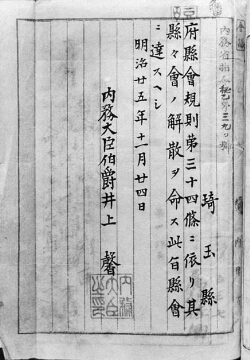 埼玉縣
府縣會規則第三十四條ニ依リ其
縣々會ノ解散ヲ命ス此旨縣會
ニ達スヘシ
明治廿五年十一月廿四日
内務大臣伯爵井上馨
内務大臣之印